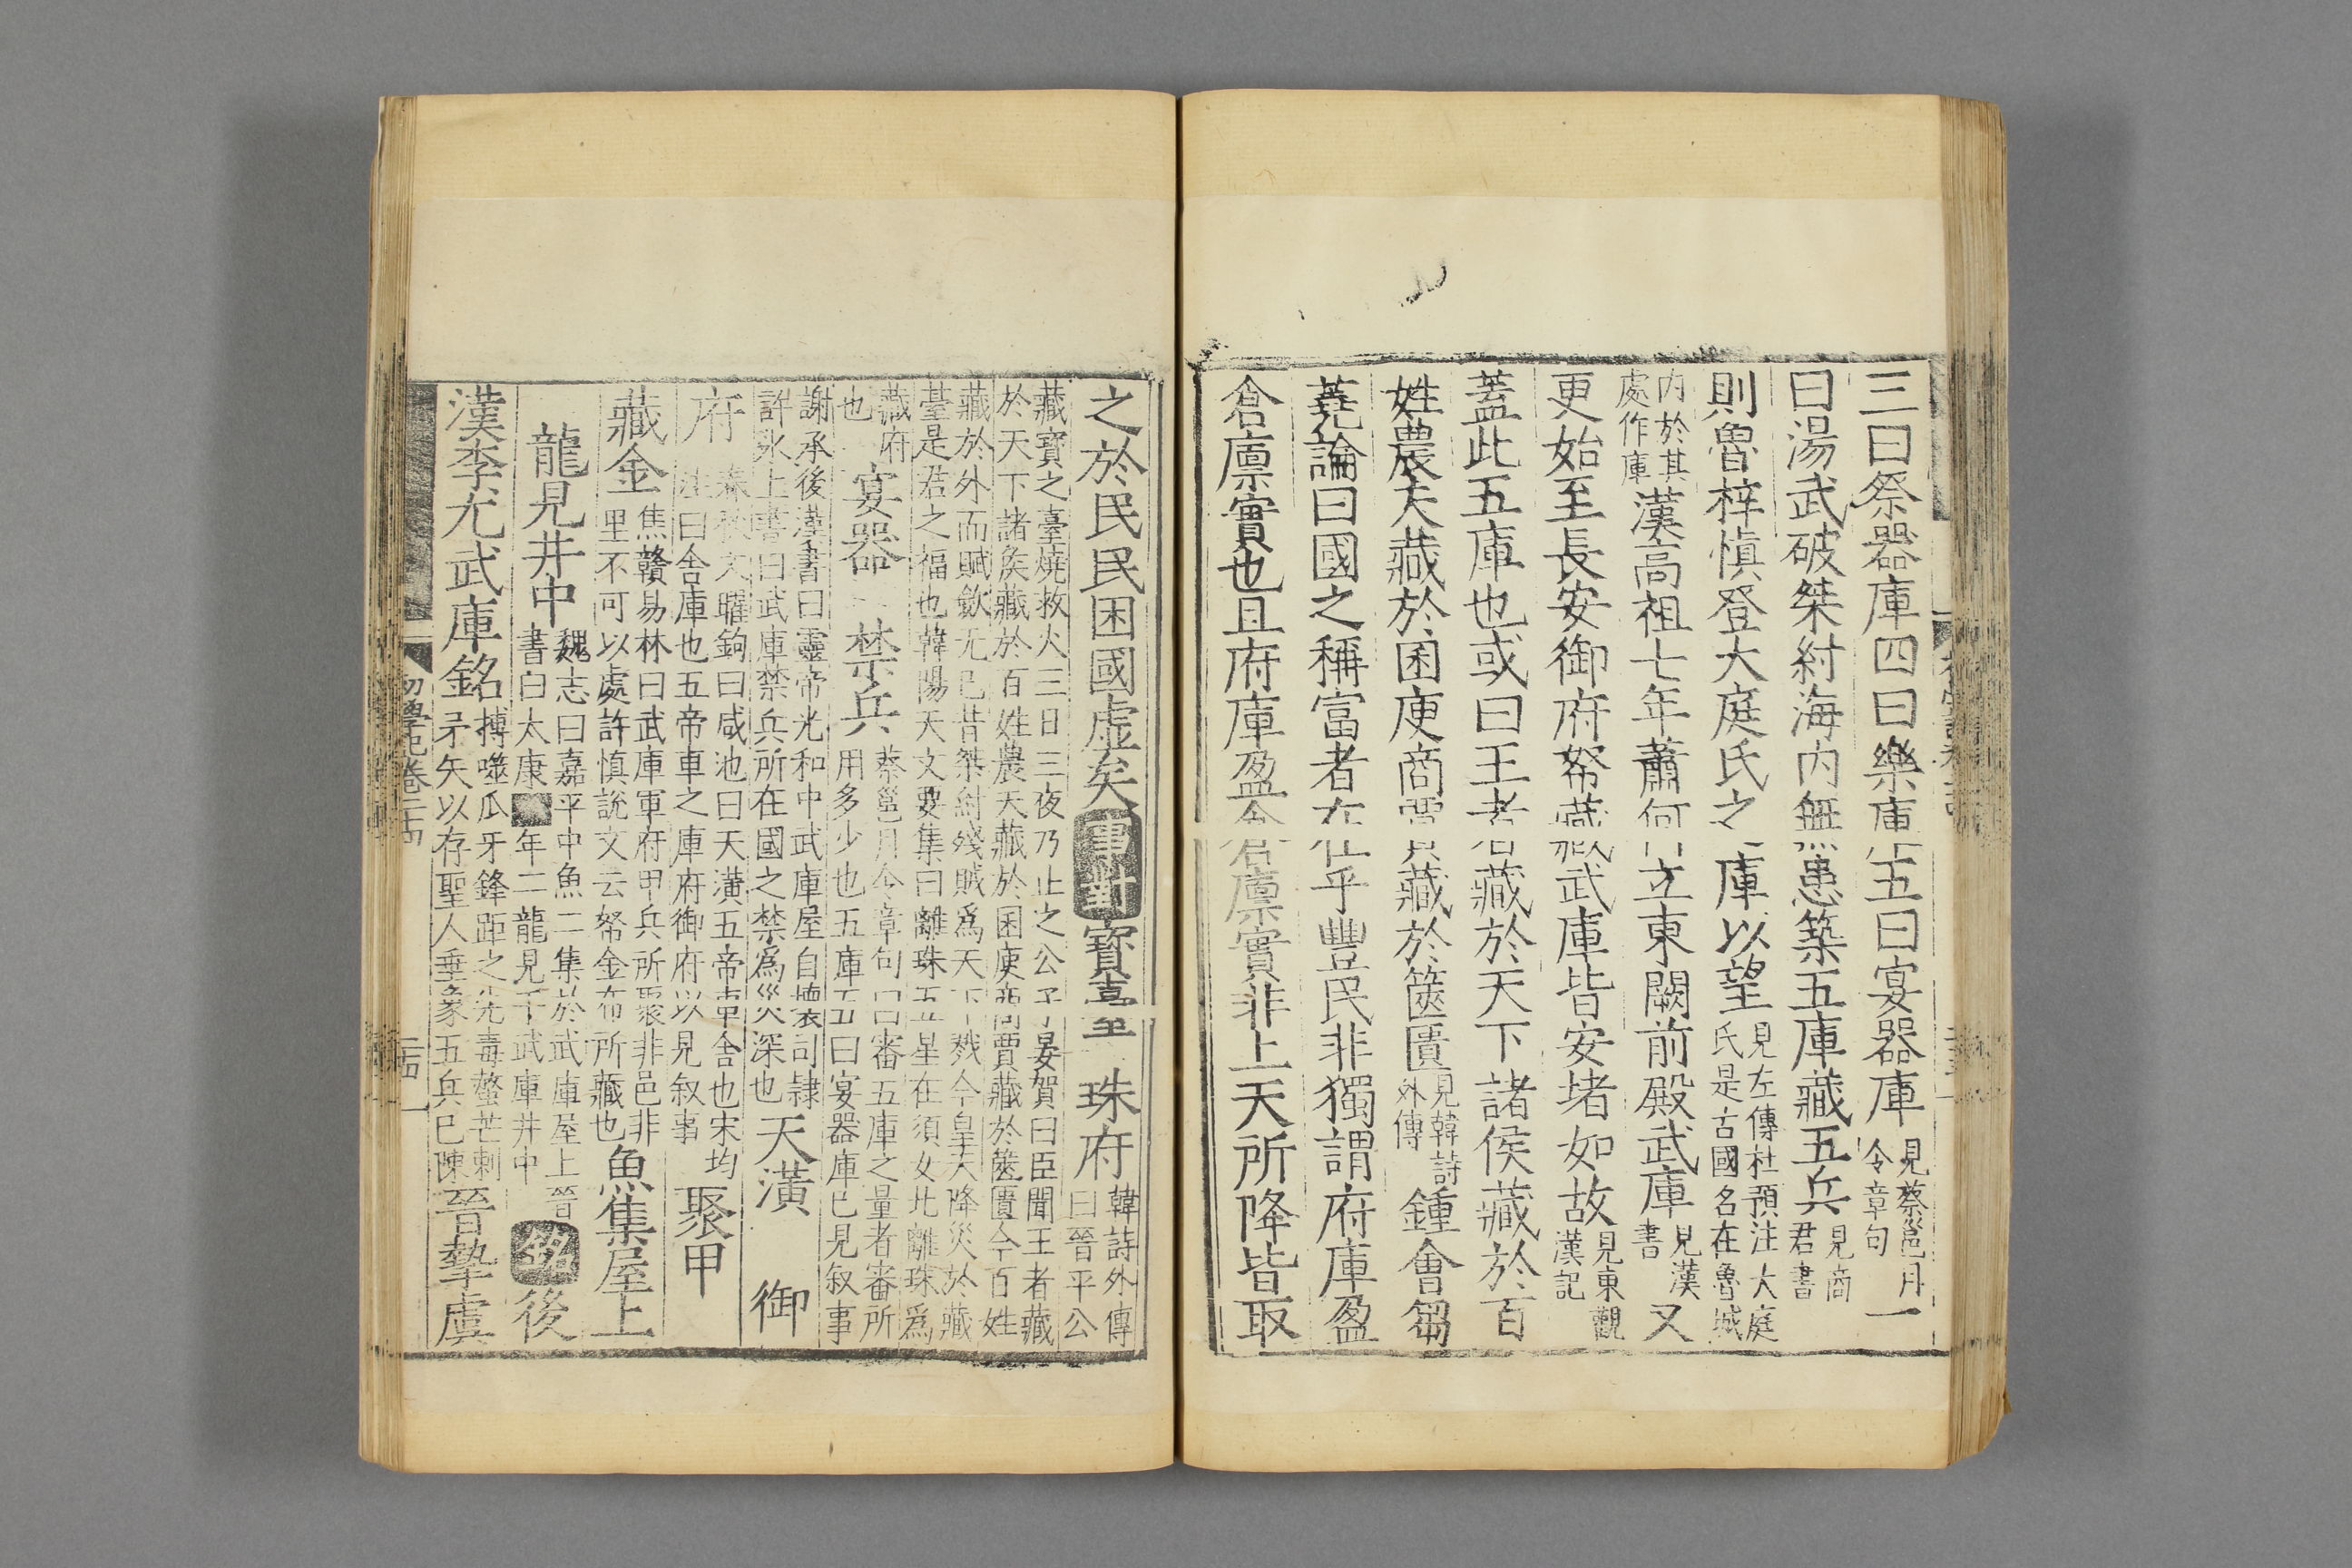 三曰祭器庫四曰樂庫五曰宴器庫見蔡邕月令章句一
曰湯武破桀紂海內無患築五庫藏五兵見商君書
則魯梓慎登大庭氏之庫以望見左傳杜預注大庭氏是古國名在魯城
內於其處作庫漢高祖七年蕭何立東闕前殿武庫見漢書又
更始至長安御府帑藏武庫皆安堵如故見東觀漢記
蓋此五庫也或曰王者藏於天下諸侯藏於百
姓農夫藏於囷庾商賈藏於篋匱見韓詩外傳鍾會芻
蕘論曰國之稱富者在乎豐民非獨謂府庫盈
倉廩實也且府庫盈倉廩實非上天所降皆取
之於民民困國虛矣事對寶臺珠府韓詩外傳曰晉平公
藏寶之臺燒救火三日三夜乃止之公子晏賀曰臣聞王者藏
於天下諸矦藏於百姓農夫藏於囷庾商賈藏於篋匱今百姓
藏於外而賦歛无已昔桀紂殘賊爲天下戮今皇天降災於藏
臺是君之福也韓陽天文要集曰離珠五星在須女北離珠爲
藏府也宴器禁兵蔡邕月令章句曰審五庫之量者審所用多少也五庫五曰宴器庫已見叙事
謝承後漢書曰靈帝光和中武庫屋自壞司隸
許永上書曰武庫禁兵所在國之禁爲災深也天潢御
府春秋文曜鉤曰咸池曰天潢五帝車舍也宋均注曰舍庫也五帝車之庫府御府以見叙事聚甲
藏金焦贛易林曰武庫軍府甲兵所聚非邑非里不可以處許慎說文云帑金布所藏也魚集屋上
龍見井中魏志曰嘉平中魚二集於武庫屋上晉書曰太康年二龍見于武庫井中銘後
漢李尤武庫銘搏噬爪牙鋒距之先毒螫芒刺矛矢以存聖人垂象五兵已陳晉摯虞
初學記卷二十四
二四